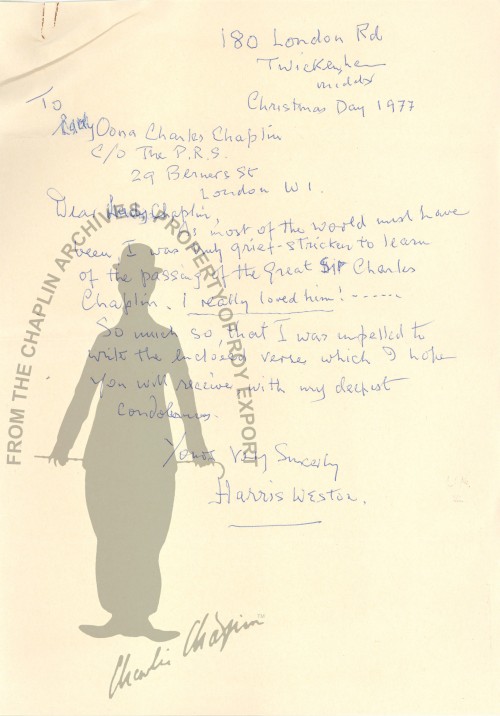 180 London Rd
Twickenham
middx
Christmas Day 1977
To
Lady Oona Charles Chaplin
C/o The P.R.S.
29 Berners St
London W1.
Dear Lady Chaplin,
As most of the world must have
been I was truly grief-stricken to learn
of the passing of the Great Sir Charles
Chaplin. I really loved him! ......
So much so, that I was impelled to
write the enclosed verse which I hope
you will receive with my deepest
condolences.
Yours Very Sincerely
Harris Weston.
FROM THE CHAPLIN ARCHIVES - PROPERTY OF ROY EXPORT
Charlie Chaplin